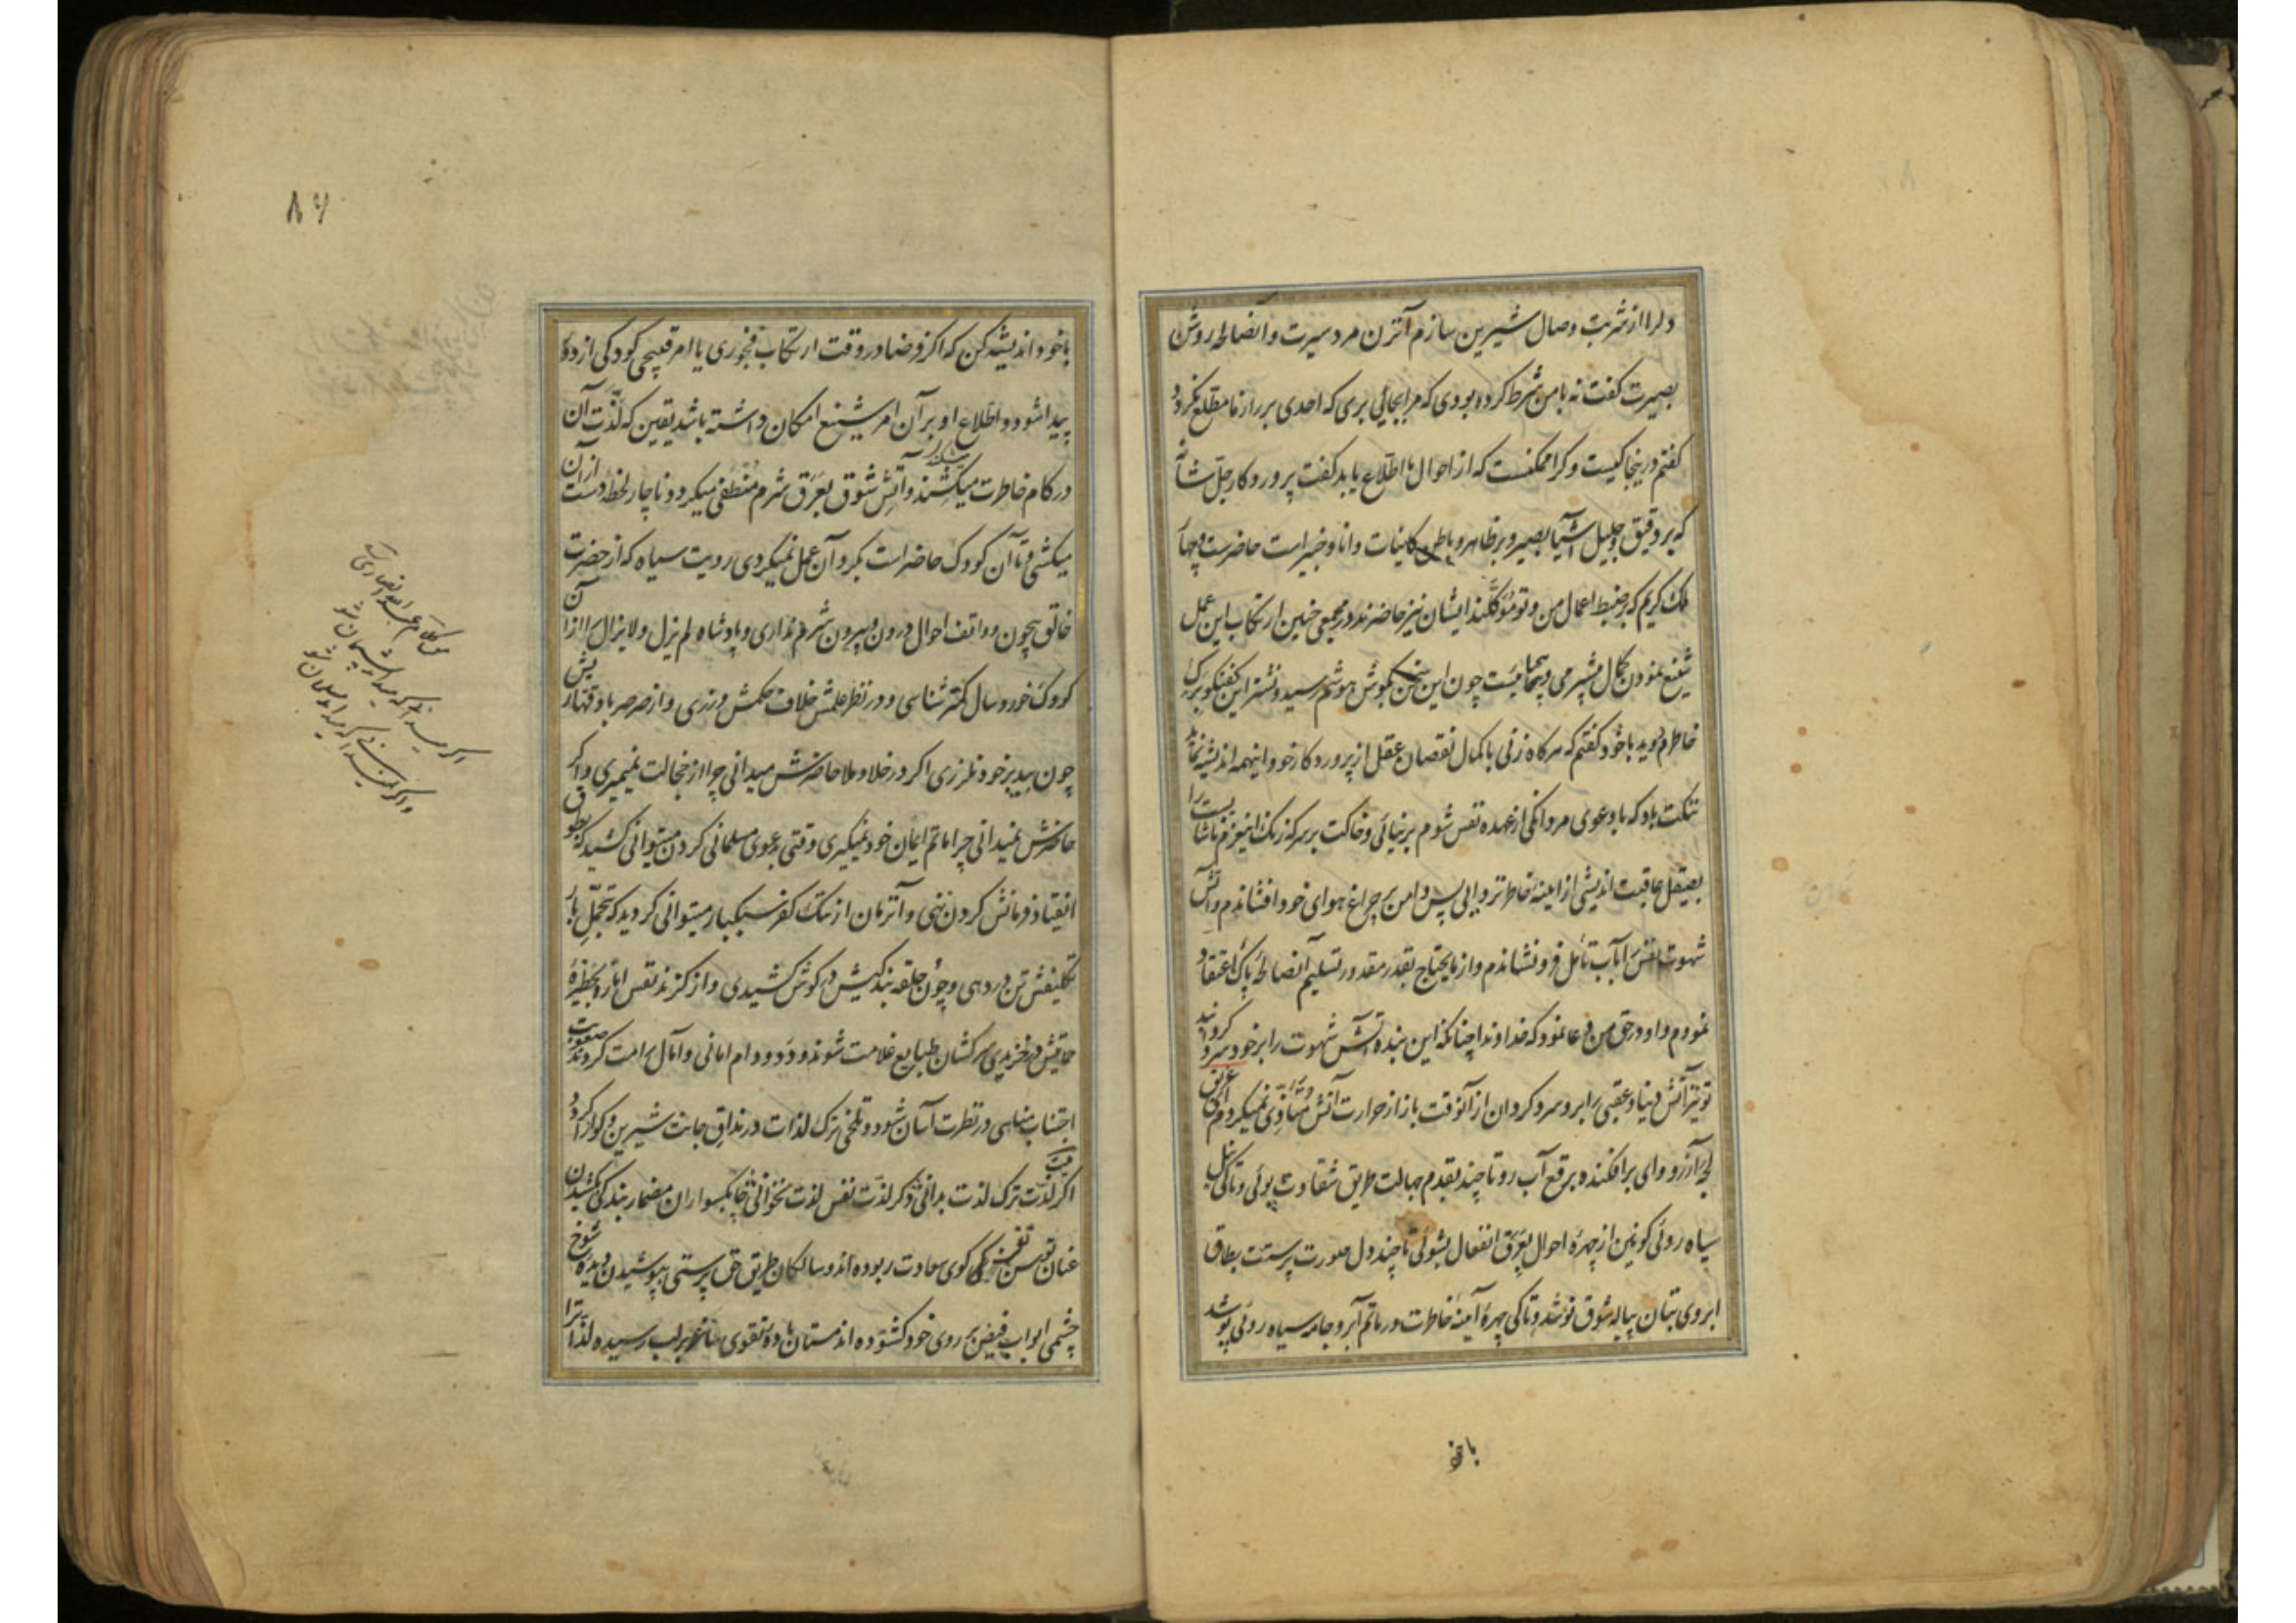 دلرا از شربت وصال شیرین سازم آنزن مرد سیرت و آنصالحه روشن
بصیرت کفت نه با من شرط کرده بودی که مرا بجائی بری که احدی بر راز ما مطلع نکردد
کفتم در ینجا کیست و کرا ممکنست که از احوال ما اطلاع یابد کفت پروردکار جل شانه
که بر دقیق و جلیل اشیا بصیر و بر ظاهر و باطن کاینات دانا و خبیر است حاضرست و چهار
ملک کریم که بر ضبط اعمال من و تو موکلند ایشان نیز حاضرند در مجمعی چنین ارتکاب این عمل
شنیع نمودن کمال بیشرمی و بیحیائیست چون این سخن بکوش هوشم رسید و نشتر این کفتکو برک
خاطرم دوید با خود کفتم که هر کاه زنی با کمال نقصان عقل از پروردکار خود اینهمه اندیشه نماید
ننکت باد که با دعوی مردانکی از عهده نفس شوم بر نیائی و خاکت بر سر که زنک این عزم ناشایست را
بصیقل عاقبت اندیشی از آینه خاطر نزدایی پس دامن بر چراغ هوای خود افشاندم و آتش
شهوت نفس را بآب تامل فرو نشاندم و از مایحتاج بقدر مقدور تسلیم آنصالحه پاک اعتقاد
نمودم و او در حق من دعا نمود که خداوندا چنانکه این بنده آتش شهوت را بر خود سرد کردانید
تو نیز آتش دنیا و عقبی را برو سرد کردان از آنوقت باز از حرارت آتش متاذی نمیکردم ای غریق
لجه آرزو وای برافکنده برقع آب رو تا چند بقدم جهالت طریق شقاوت پوئی و تاکی نیل
سیاه روئی کونین از چهره احوال بعرق انفعال نشوئی تا چند دل صورت پرستت بطاق
ابروی بتان پیاله شوق نوشد و تاکی چهره آینه خاطرت در ماتم آبرو جامه سیاه روئی پوشد
با خود
۸۶
با خود اندیشه کن که اکر فرضا در وقت ارتکاب فجوری یا امر قبیحی کودکی از دور
پیدا شود و اطلاع او بر آن امر شنیع امکان داشته باشد یقین که لذت آن
در کام خاطرت میشکند و آتش شوق بعرق شرم منطفی میکردد و ناچار لحظه دست از آن
میکشی و تا آن کودک حاضر است بکرد آن عمل نمیکردی رویت سیاه که از حضرت
خالق بیچون و واقف احوال درون و بیرون شرم نداری و پادشاه لم یزل و لا یزال را از آن
کودک خورد سال کمتر شناسی و در نظر علمش خلاف حکمش ورزی و از صرصر باد قهاریش
چون بید بر خود نلرزی اکر در خلا و ملا حاضرش میدانی چرا از خجالت نمیمیری و اکر
حاضرش نمیدانی چرا ماتم ایمان خود نمیکیری وقتی دعوی مسلمانی کردن میتوانی کشید که بطوق
انقیاد فرمانش کردن نهی و آنزمان از ننک کفر سبکبار میتوانی کردید که بتحمل بار
تکلیفش تن در دهی و چون حلقه بندکیش در کوش کشیدی و از کزند نفس اماره بحظیره
حمایتش در خزیدی سرکشان طبایع غلامت شوند و دد و دام امانی و آمال رامت کردند صعوبت
اجتناب مناهی در نظرت آسان شود و تلخی ترک لذات در مذاق جانت شیرین و کوارا کردد
بیت
اکر لذت ترک لذت بدانی دکر لذت نفس لذت نخوانی چابکسواران مضمار بندکی بکشیدن
عنان توسن نفس کوی سعادت ربوده اند و سالکان طریق حق پرستی بپوشیدن دیده شوخ
چشمی ابواب فیض بر روی خود کشوده اند مستان باده تقوی ساغر بر لب رسیده لذات را
من کلام عبدالله انصاری